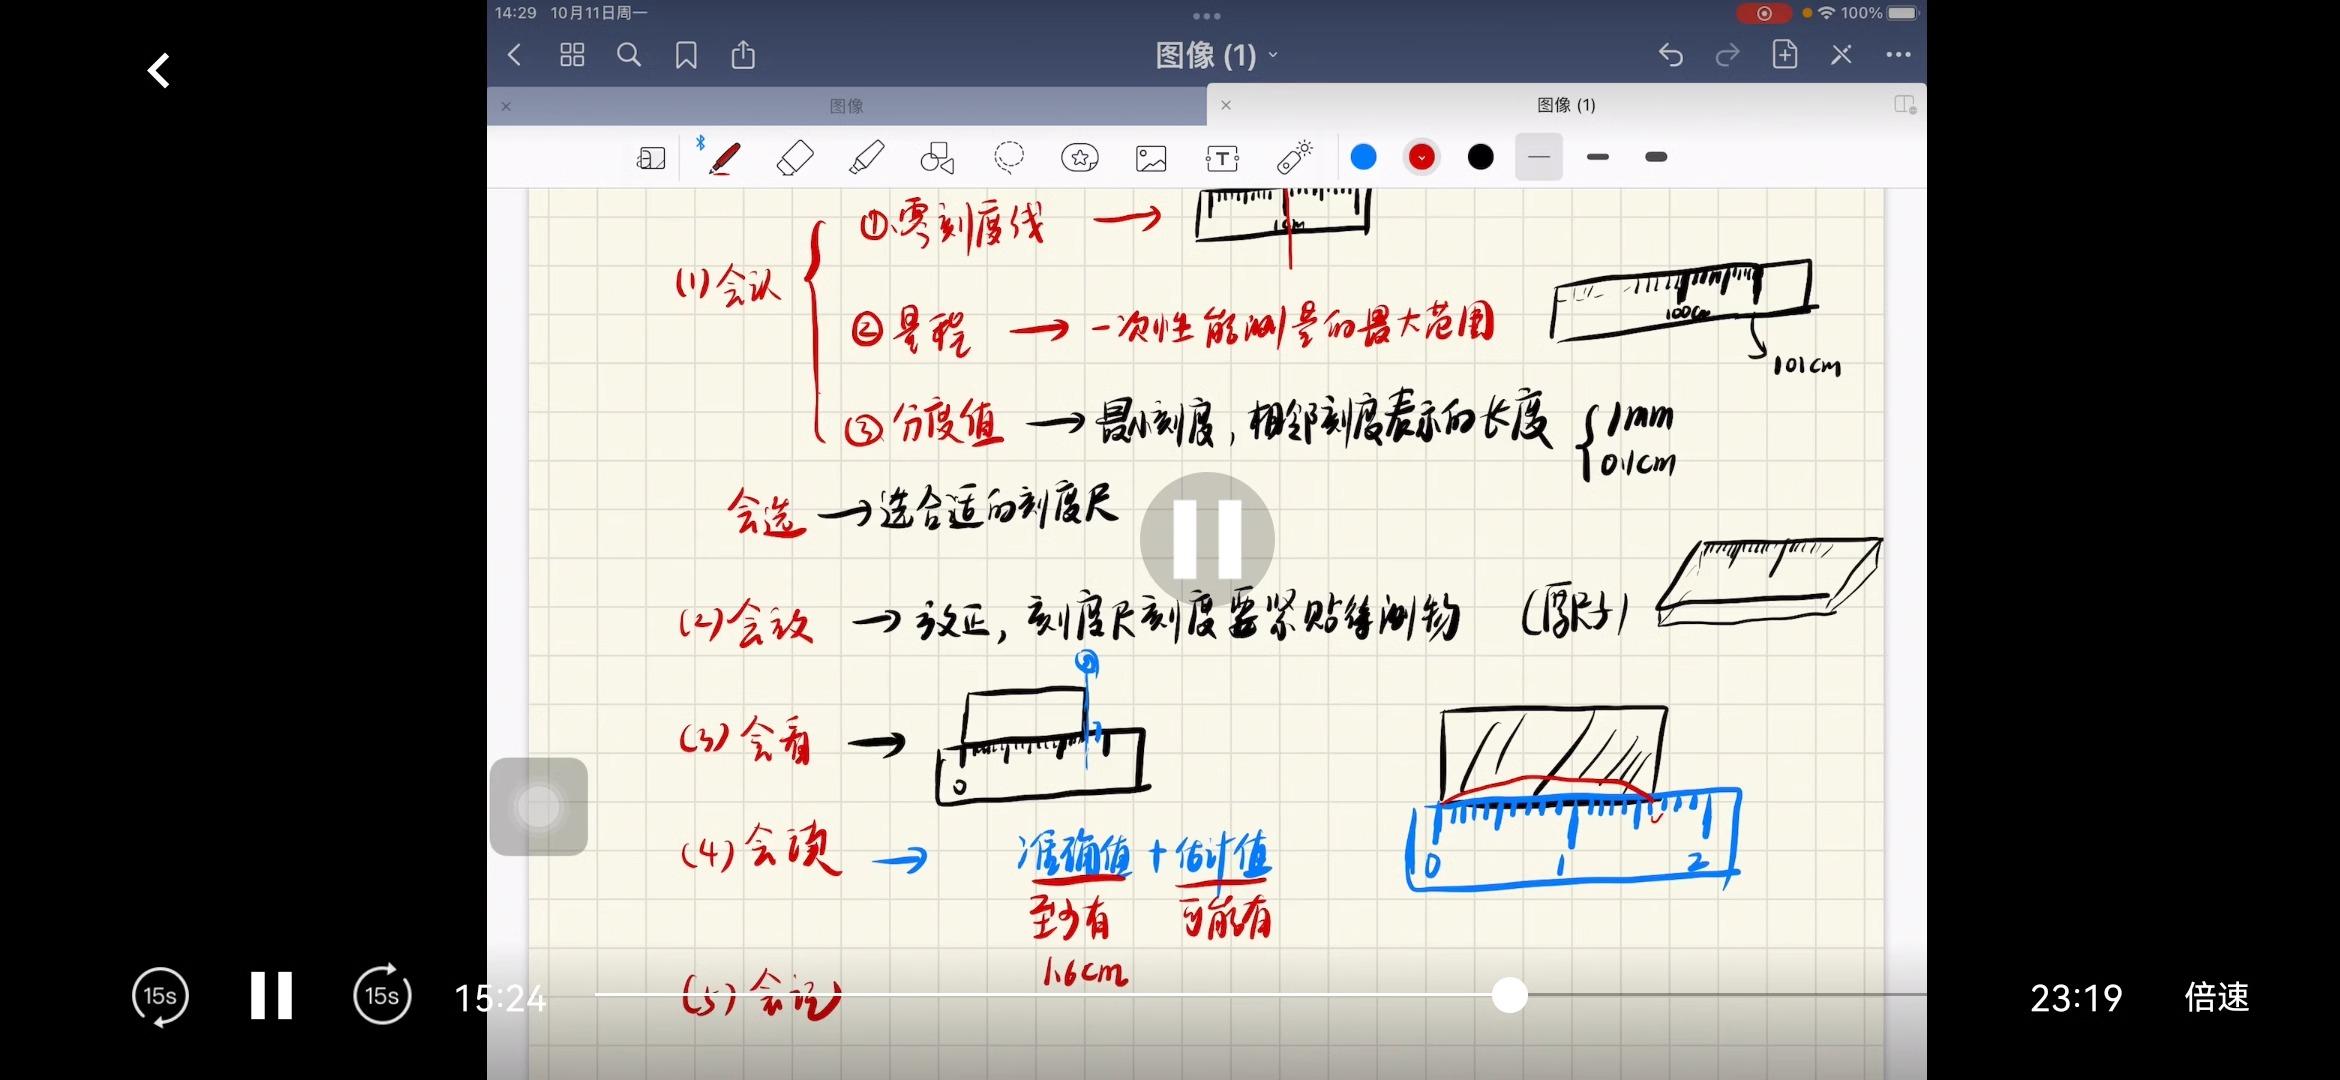 14:29 10月11日周一
100%
图像 (1)
图像
图像 (1)
①零刻度线 →
1cm
(1)会认
100cm
②量程 → 一次性能测量的最大范围
101cm
③分度值 → 最小刻度,相邻刻度表示的长度 {1mm
0.1cm
会选 → 选合适的刻度尺
(2)会放 → 放正,刻度尺刻度要紧贴待测物 (厚尺子)
(3)会看 →
0
(4)会读 → 准确值 + 估计值
0 1 2
至少有 可能有
1.6cm
(5)会记
15s 15s 15:24 23:19 倍速